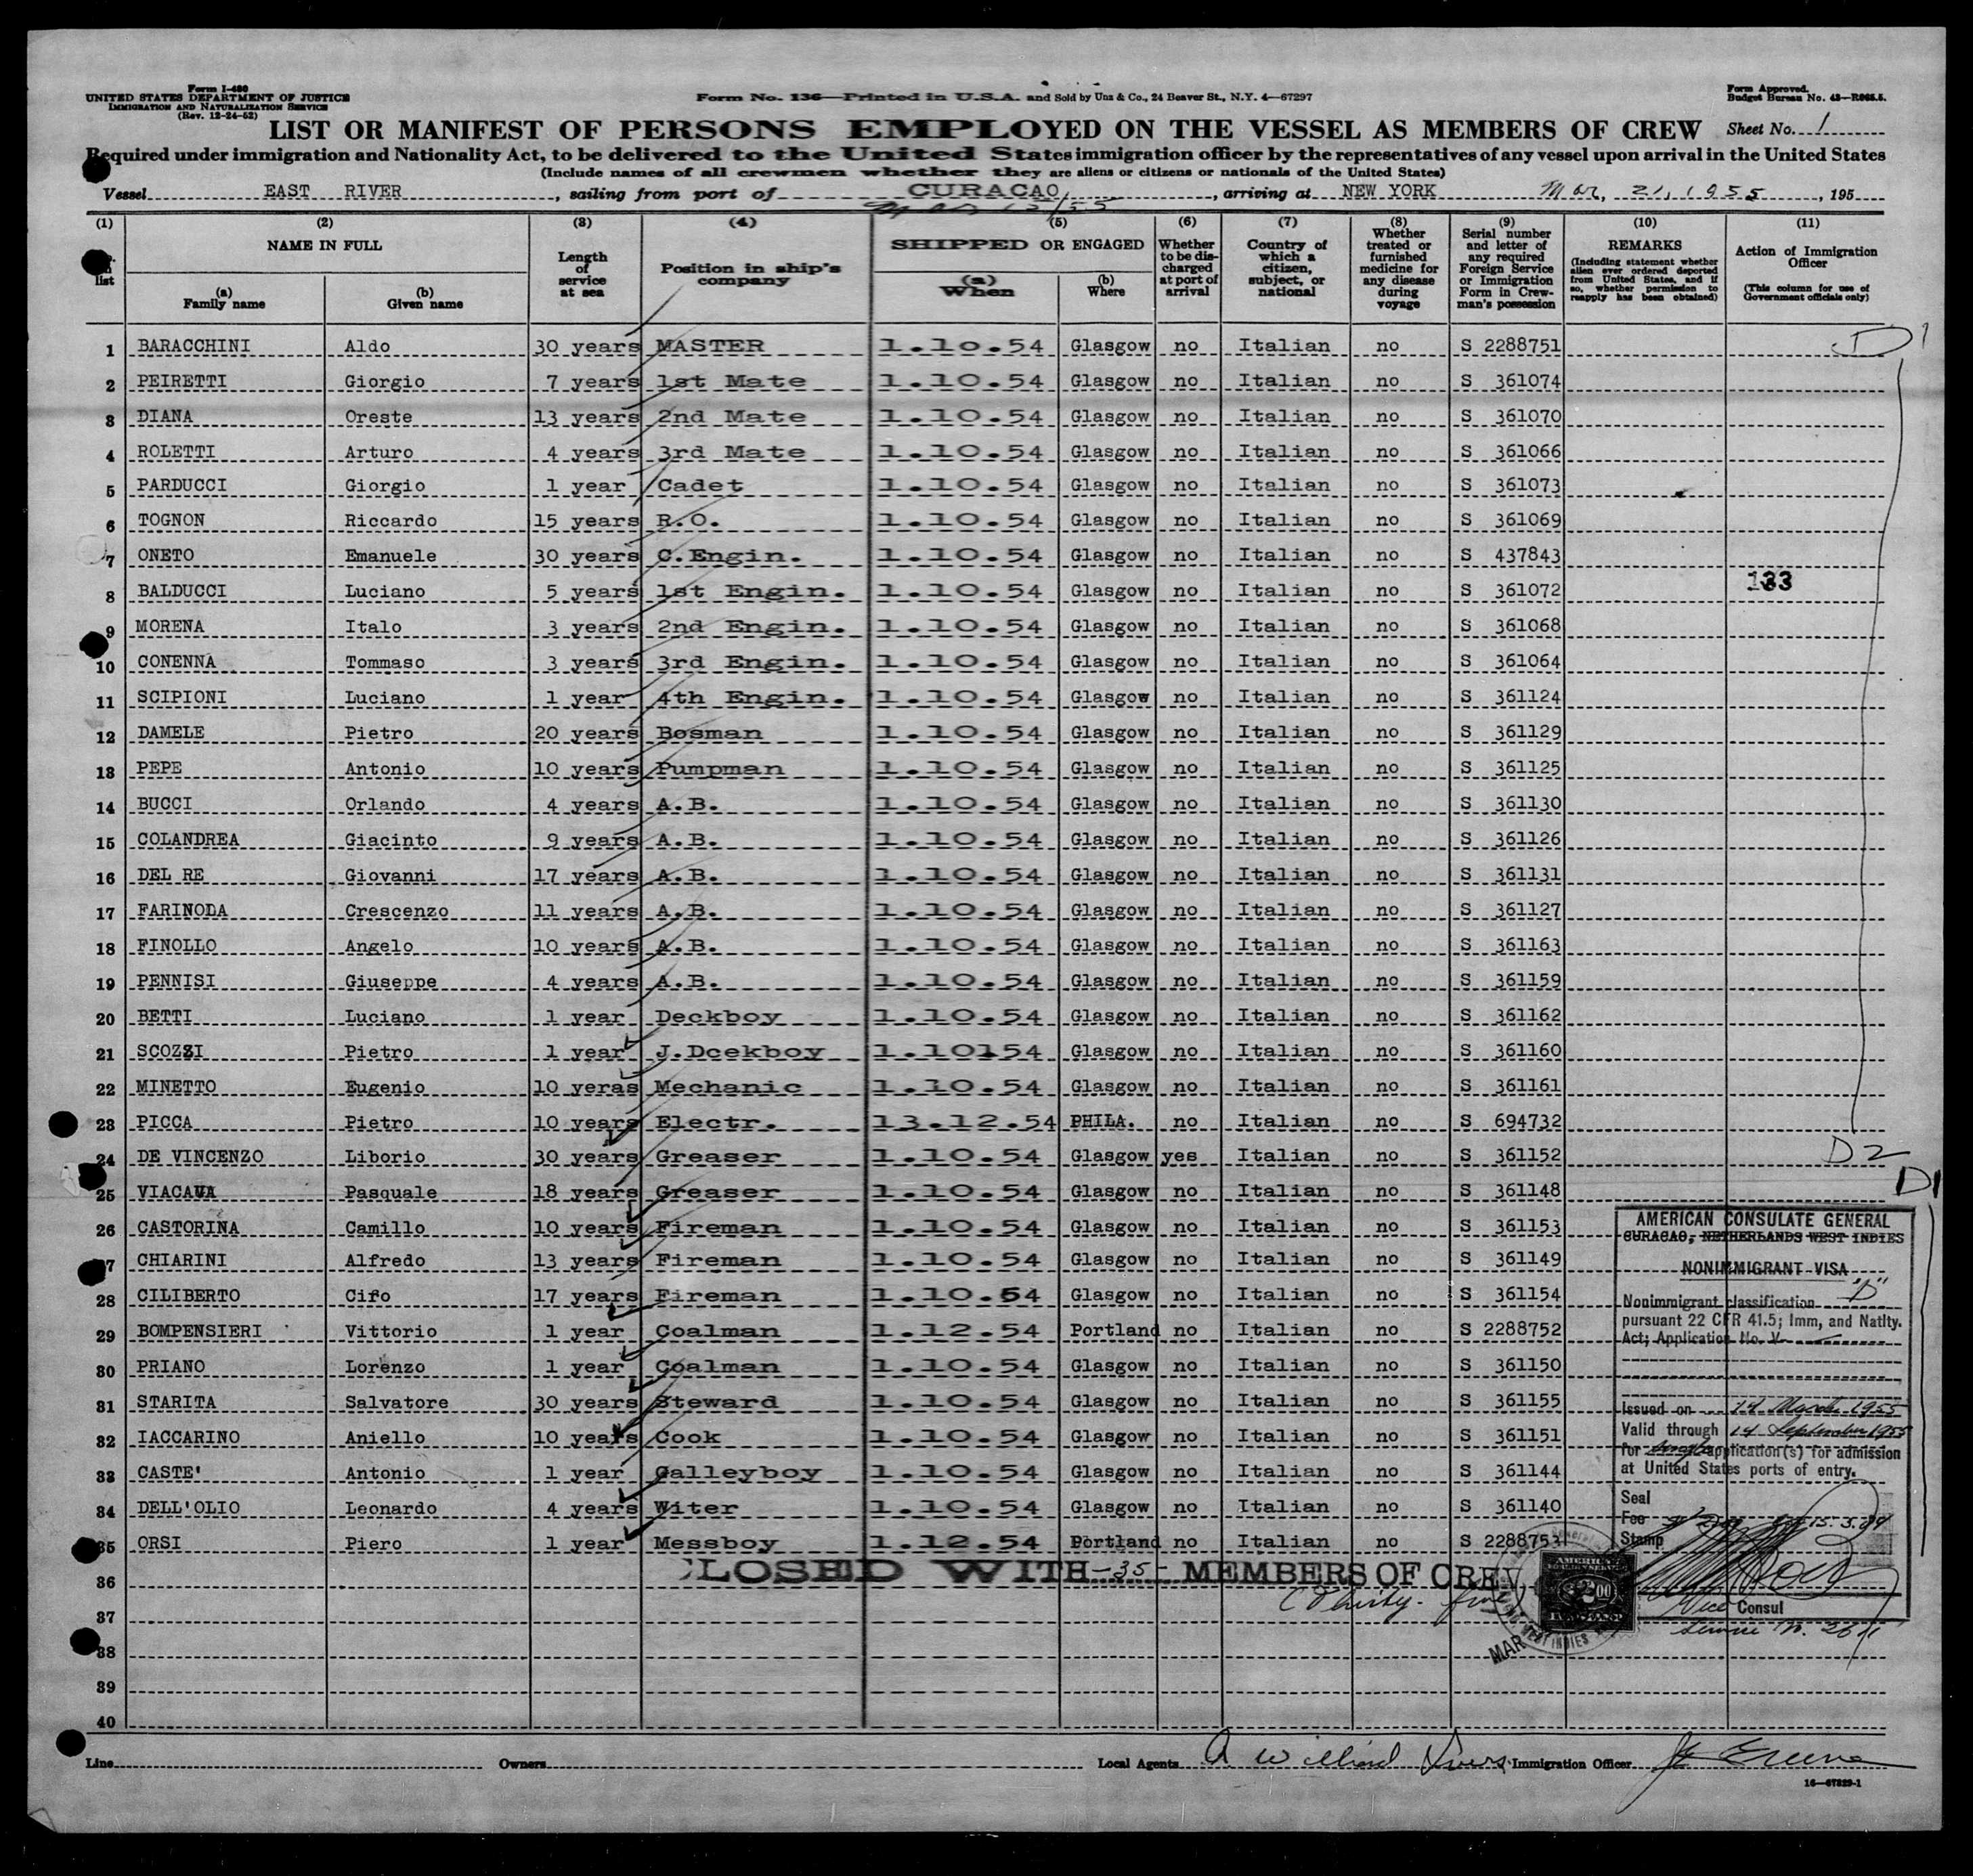 Form I-480
UNITED STATES DEPARTMENT OF JUSTICE
IMMIGRATION AND NATURALIZATION SERVICE
(Rev. 12-24-52)
Form No. 136—Printed in U.S.A. and Sold by Unz & Co., 24 Beaver St., N.Y. 4—67297
Form Approved.
Budget Bureau No. 43—R065.5.
LIST OR MANIFEST OF PERSONS EMPLOYED ON THE VESSEL AS MEMBERS OF CREW Sheet No. 1
Required under immigration and Nationality Act, to be delivered to the United States immigration officer by the representatives of any vessel upon arrival in the United States
(Include names of all crewmen whether they are aliens or citizens or nationals of the United States)
Vessel EAST RIVER, sailing from port of CURACAO, arriving at NEW YORK Mar, 21, 1955, 195
Mar 15/55
(1) (2) (3) (4) (5) (6) (7) (8) (9) (10) (11)
list
NAME IN FULL
(a) Family name
(b) Given name
Length of service at sea
Position in ship's company
SHIPPED OR ENGAGED
(a) When
(b) Where
Whether to be discharged at port of arrival
Country of which a citizen, subject, or national
Whether treated or furnished medicine for any disease during voyage
Serial number and letter of any required Foreign Service or Immigration Form in Crewman's possession
REMARKS
(Including statement whether alien ever ordered deported from United States, and if so, whether permission to reapply has been obtained)
Action of Immigration Officer
(This column for use of Government officials only)
1 BARACCHINI Aldo 30 years MASTER 1.10.54 Glasgow no Italian no S 2288751 D1
2 PEIRETTI Giorgio 7 years 1st Mate 1.10.54 Glasgow no Italian no S 361074
3 DIANA Oreste 13 years 2nd Mate 1.10.54 Glasgow no Italian no S 361070
4 ROLETTI Arturo 4 years 3rd Mate 1.10.54 Glasgow no Italian no S 361066
5 PARDUCCI Giorgio 1 year Cadet 1.10.54 Glasgow no Italian no S 361073
6 TOGNON Riccardo 15 years R.O. 1.10.54 Glasgow no Italian no S 361069
7 ONETO Emanuele 30 years C.Engin. 1.10.54 Glasgow no Italian no S 437843
8 BALDUCCI Luciano 5 years 1st Engin. 1.10.54 Glasgow no Italian no S 361072 133
9 MORENA Italo 3 years 2nd Engin. 1.10.54 Glasgow no Italian no S 361068
10 CONENNA Tommaso 3 years 3rd Engin. 1.10.54 Glasgow no Italian no S 361064
11 SCIPIONI Luciano 1 year 4th Engin. 1.10.54 Glasgow no Italian no S 361124
12 DAMELE Pietro 20 years Bosman 1.10.54 Glasgow no Italian no S 361129
13 PEPE Antonio 10 years Pumpman 1.10.54 Glasgow no Italian no S 361125
14 BUCCI Orlando 4 years A.B. 1.10.54 Glasgow no Italian no S 361130
15 COLANDREA Giacinto 9 years A.B. 1.10.54 Glasgow no Italian no S 361126
16 DEL RE Giovanni 17 years A.B. 1.10.54 Glasgow no Italian no S 361131
17 FARINOLA Crescenzo 11 years A.B. 1.10.54 Glasgow no Italian no S 361127
18 FINOLLO Angelo 10 years A.B. 1.10.54 Glasgow no Italian no S 361163
19 PENNISI Giuseppe 4 years A.B. 1.10.54 Glasgow no Italian no S 361159
20 BETTI Luciano 1 year Deckboy 1.10.54 Glasgow no Italian no S 361162
21 SCOZZI Pietro 1 year J.Dcekboy 1.10154 Glasgow no Italian no S 361160
22 MINETTO Eugenio 10 yeras Mechanic 1.10.54 Glasgow no Italian no S 361161
23 PICCA Pietro 10 years Electr. 13.12.54 PHILA. no Italian no S 694732
24 DE VINCENZO Liborio 30 years Greaser 1.10.54 Glasgow yes Italian no S 361152 D2
25 VIACAVA Pasquale 18 years Greaser 1.10.54 Glasgow no Italian no S 361148 D1
26 CASTORINA Camillo 10 years Fireman 1.10.54 Glasgow no Italian no S 361153
27 CHIARINI Alfredo 13 years Fireman 1.10.54 Glasgow no Italian no S 361149
28 CILIBERTO Ciro 17 years Fireman 1.10.54 Glasgow no Italian no S 361154
29 BOMPENSIERI Vittorio 1 year Coalman 1.12.54 Portland no Italian no S 2288752
30 PRIANO Lorenzo 1 year Coalman 1.10.54 Glasgow no Italian no S 361150
31 STARITA Salvatore 30 years Steward 1.10.54 Glasgow no Italian no S 361155
32 IACCARINO Aniello 10 years Cook 1.10.54 Glasgow no Italian no S 361151
33 CASTE' Antonio 1 year Galleyboy 1.10.54 Glasgow no Italian no S 361144
34 DELL'OLIO Leonardo 4 years Witer 1.10.54 Glasgow no Italian no S 361140
35 ORSI Piero 1 year Messboy 1.12.54 Portland no Italian no S 2288753
CLOSED WITH -35- MEMBERS OF CREW
(Thirty-five)
36
37
38
39
40
AMERICAN CONSULATE GENERAL
CURACAO, NETHERLANDS WEST INDIES
NONIMMIGRANT VISA
Nonimmigrant classification "D"
pursuant 22 CFR 41.5; Imm, and Natlty.
Act; Application No. V
Issued on 14 March 1955
Valid through 14 September 1955
for single application(s) for admission
at United States ports of entry.
Seal
Fee
Stamp
Vice Consul
Service No. 
AMERICAN
$2.00
WEST INDIES
MAR
Line Owners Local Agents A Willard Ivers Immigration Officer
16—67329-1